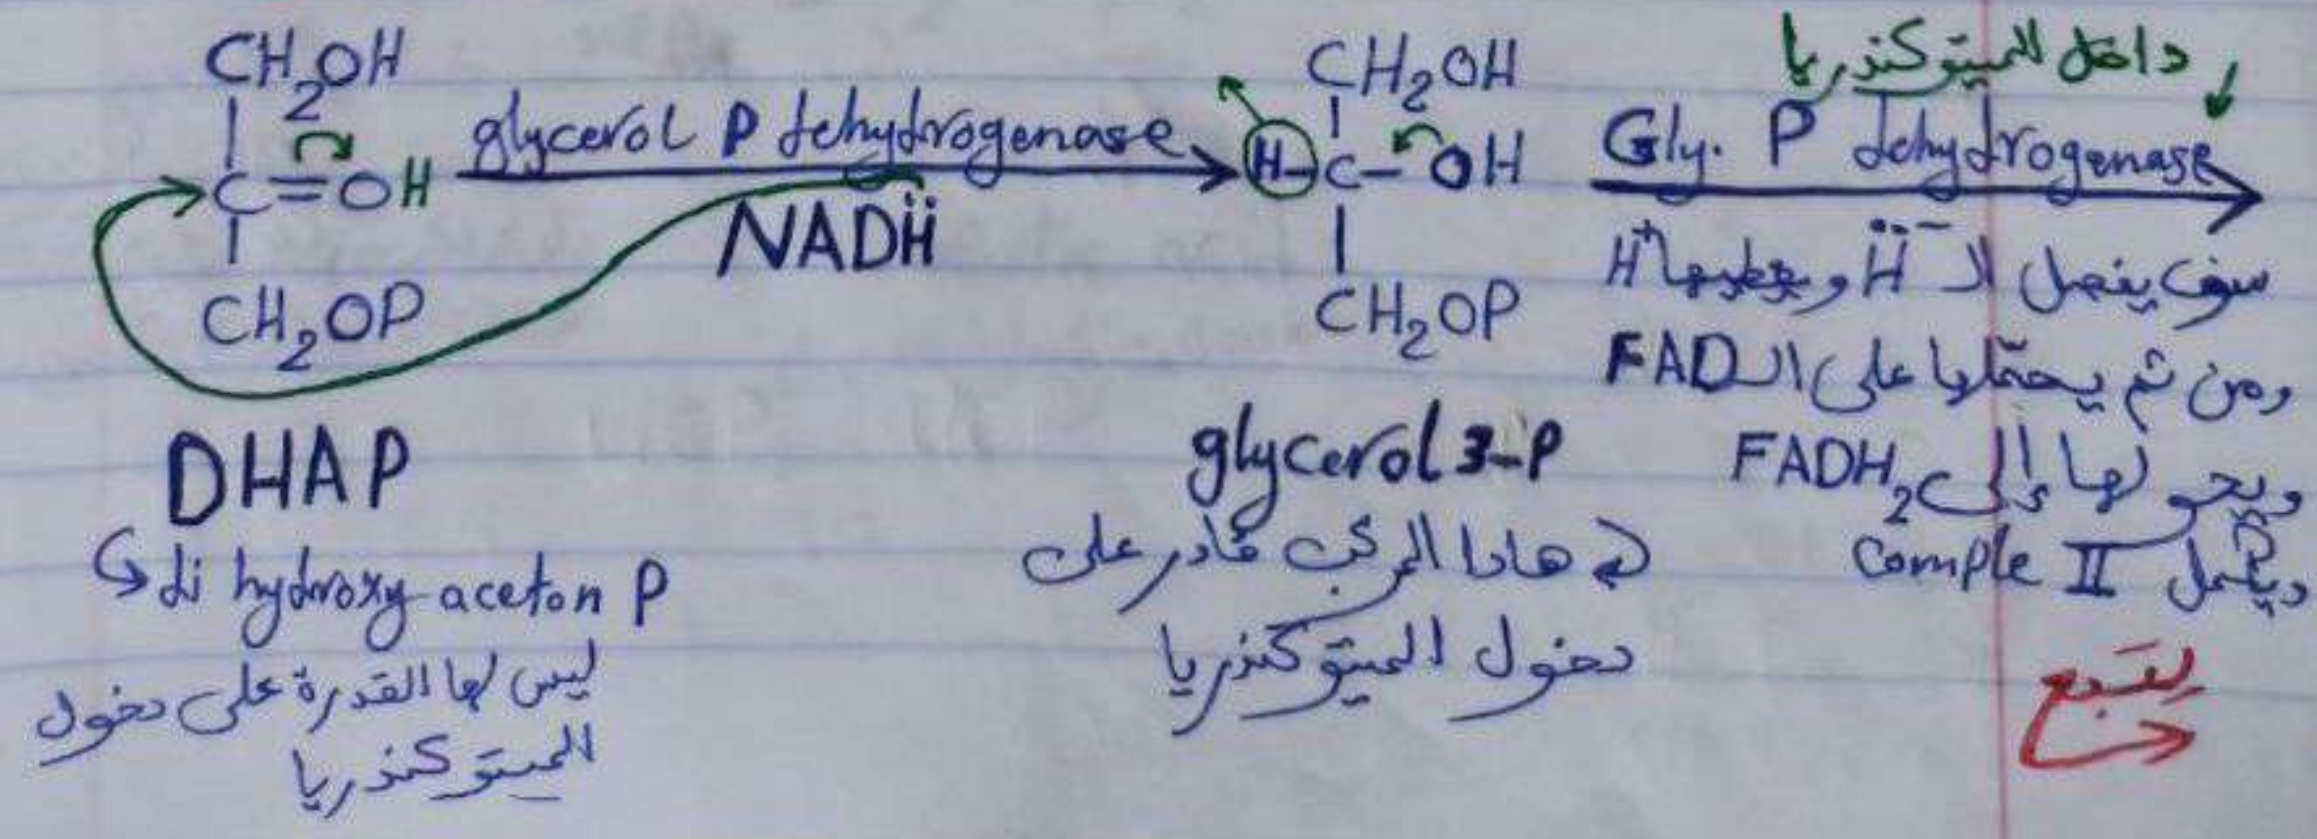 CH₂OH
C=OH
CH₂OP
glycerol P dehydrogenase
NADḦ
CH₂OH
H-C-OH
CH₂OP
داخل الميتوكندريا
Gly. P dehydrogenase
سوف ينفصل الـ Ḧ⁻ ويعطيها H⁺
ومن ثم يحمّلها على الـ FAD
ويحولها إلى FADH₂
ويكمل comple II
يتبع
DHAP
di hydroxy aceton P
ليس لها القدرة على دخول
الميتوكندريا
glycerol 3-P
هاذا المركب قادر على
دخول الميتوكندريا